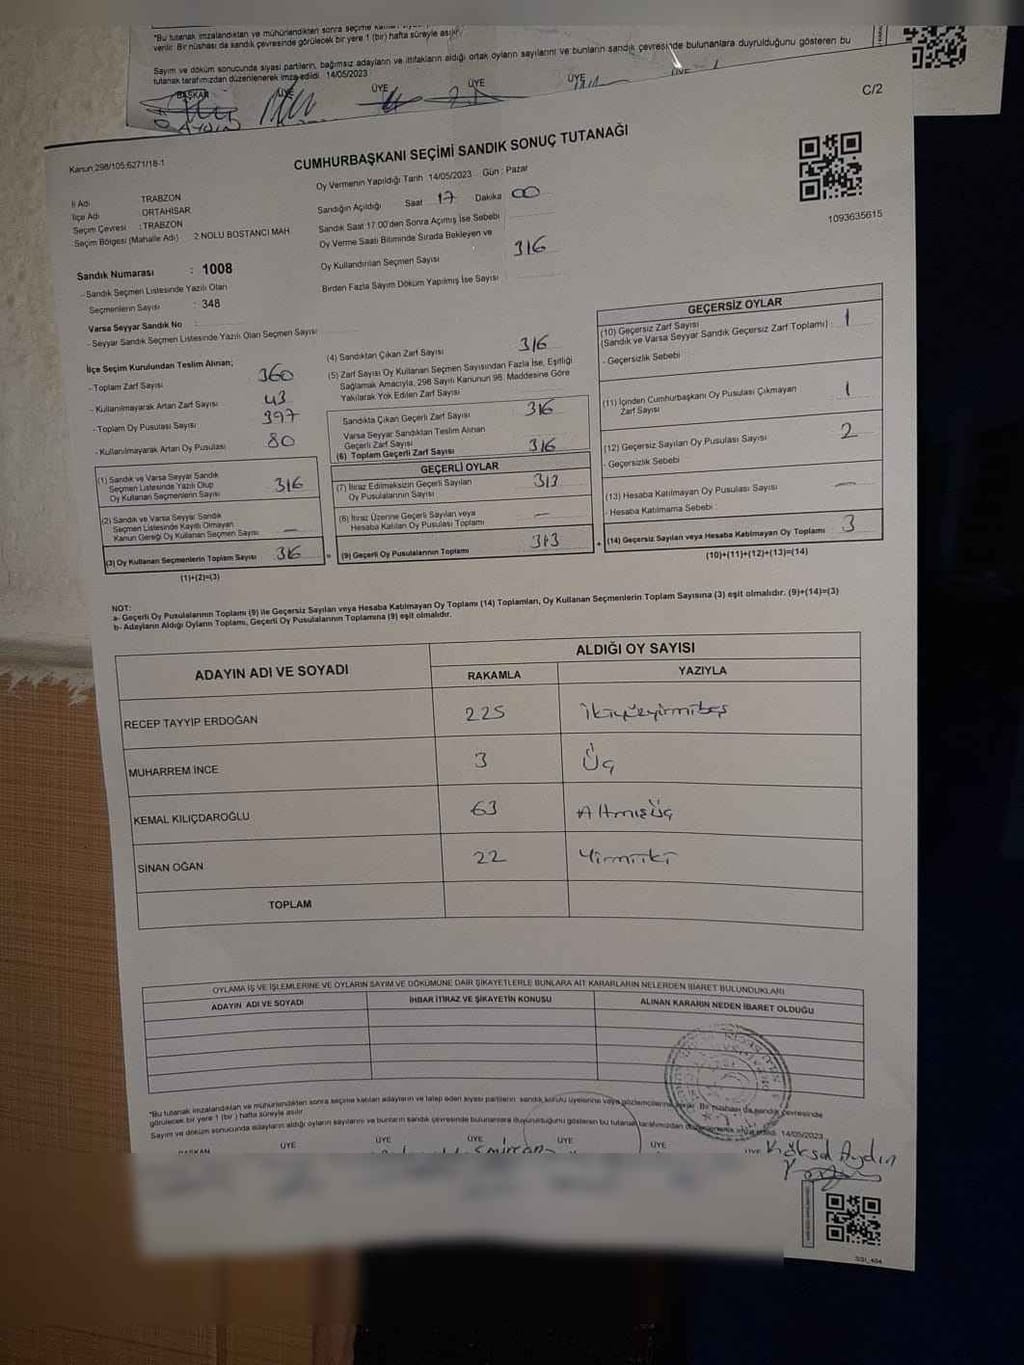 "Bu tutanak imzalandıktan ve mühürlendikten sonra seçime
verilir. Bir nüshası da sandık çevresinde görülecek bir yere 1 (bir) hafta süreyle asılır.
Sayım ve döküm sonucunda siyasi partilerin, bağımsız adayların ve ittifakların aldığı ortak oyların sayılarını ve bunların sandık çevresinde bulunanlara duyrulduğunu gösteren bu
tutanak tarafımızdan düzenlenerek imza edildi. 14/05/2023
BAŞKAN ÜYE ÜYE ÜYE ÜYE ÜYE
AYDIN
C/2
Kanun:298/105;6271/18-1
CUMHURBAŞKANI SEÇİMİ SANDIK SONUÇ TUTANAĞI
1093635615
İl Adı TRABZON
İlçe Adı ORTAHİSAR
Seçim Çevresi :TRABZON
Seçim Bölgesi (Mahalle Adı) 2 NOLU BOSTANCI MAH.
Oy Vermenin Yapıldığı Tarih 14/05/2023 Gün : Pazar
Sandığın Açıldığı Saat 17 Dakika 00
Sandık Saat 17.00'den Sonra Açımış İse Sebebi
Oy Verme Saati Bitiminde Sırada Bekleyen ve
Oy Kullandırılan Seçmen Sayısı 316
Birden Fazla Sayım Döküm Yapılmış İse Sayısı
Sandık Numarası : 1008
- Sandık Seçmen Listesinde Yazılı Olan
Seçmenlerin Sayısı : 348
Varsa Seyyar Sandık No :
- Seyyar Sandık Seçmen Listesinde Yazılı Olan Seçmen Sayısı
İlçe Seçim Kurulundan Teslim Alınan;
- Toplam Zarf Sayısı 360
- Kullanılmayarak Artan Zarf Sayısı 43
- Toplam Oy Pusulası Sayısı 397
- Kullanılmayarak Artan Oy Pusulası 80
(1) Sandık ve Varsa Seyyar Sandık
Seçmen Listesinde Yazılı Olup
Oy Kullanan Seçmenlerin Sayısı 316
(2) Sandık ve Varsa Seyyar Sandık
Seçmen Listesinde Kayıtlı Olmayan
Kanun Gereği Oy Kullanan Seçmen Sayısı —
(3) Oy Kullanan Seçmenlerin Toplam Sayısı 316
(1)+(2)=(3)
(4) Sandıktan Çıkan Zarf Sayısı 316
(5) Zarf Sayısı Oy Kullanan Seçmen Sayısından Fazla İse, Eşitliği
Sağlamak Amacıyla, 298 Sayılı Kanunun 98. Maddesine Göre
Yakılarak Yok Edilen Zarf Sayısı
Sandıkta Çıkan Geçerli Zarf Sayısı 316
Varsa Seyyar Sandıktan Teslim Alınan
Geçerli Zarf Sayısı
(6) Toplam Geçerli Zarf Sayısı 316
GEÇERLİ OYLAR
(7) İtiraz Edilmeksizin Geçerli Sayılan
Oy Pusulalarının Sayısı 313
(8) İtiraz Üzerine Geçerli Sayılan veya
Hesaba Katılan Oy Pusulası Toplamı —
= (9) Geçerli Oy Pusulalarının Toplamı 313
GEÇERSİZ OYLAR
(10) Geçersiz Zarf Sayısı
(Sandık ve Varsa Seyyar Sandık Geçersiz Zarf Toplamı) : 1
- Geçersizlik Sebebi
(11) İçinden Cumhurbaşkanı Oy Pusulası Çıkmayan
Zarf Sayısı 1
(12) Geçersiz Sayılan Oy Pusulası Sayısı 2
- Geçersizlik Sebebi
(13) Hesaba Katılmayan Oy Pusulası Sayısı —
- Hesaba Katılmama Sebebi :
+ (14) Geçersiz Sayılan veya Hesaba Katılmayan Oy Toplamı 3
(10)+(11)+(12)+(13)=(14)
NOT:
a- Geçerli Oy Pusulalarının Toplamı (9) ile Geçersiz Sayılan veya Hesaba Katılmayan Oy Toplamı (14) Toplamları, Oy Kullanan Seçmenlerin Toplam Sayısına (3) eşit olmalıdır. (9)+(14)=(3)
b- Adayların Aldığı Oyların Toplamı, Geçerli Oy Pusulalarının Toplamına (9) eşit olmalıdır.
ADAYIN ADI VE SOYADI ALDIĞI OY SAYISI
RAKAMLA YAZIYLA
RECEP TAYYİP ERDOĞAN 225 İkiyüzyirmibeş
MUHARREM İNCE 3 Üç
KEMAL KILIÇDAROĞLU 63 Altmışüç
SİNAN OĞAN 22 Yirmiiki
TOPLAM
OYLAMA İŞ VE İŞLEMLERİNE VE OYLARIN SAYIM VE DÖKÜMÜNE DAİR ŞİKAYETLERLE BUNLARA AİT KARARLARIN NELERDEN İBARET BULUNDUKLARI
ADAYIN ADI VE SOYADI İHBAR İTİRAZ VE ŞİKAYETİN KONUSU ALINAN KARARIN NEDEN İBARET OLDUĞU
"Bu tutanak imzalandıktan ve mühürlendikten sonra seçime katılan adayların ve talep eden siyasi partilerin sandık kurulu üyelerine veya gözlemcilerine verilir. Bir nüshası da sandık çevresinde
görülecek bir yere 1 (bir) hafta süreyle asılır
Sayım ve döküm sonucunda adayların aldığı oyların sayılarını ve bunların sandık çevresinde bulunanlara duyurulduğunu gösteren bu tutanak tarafımızdan düzenlenerek imza edildi. 14/05/2023
BAŞKAN ÜYE ÜYE ÜYE ÜYE ÜYE ÜYE
Köksal Aydın